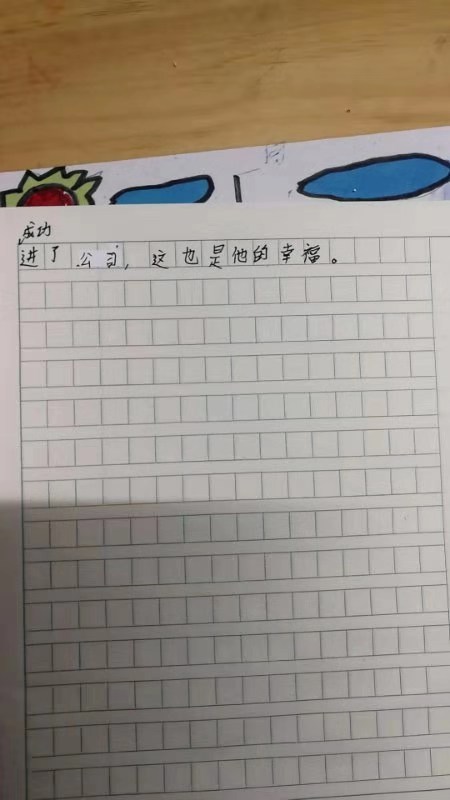 成功
进了公司，这也是他的幸福。